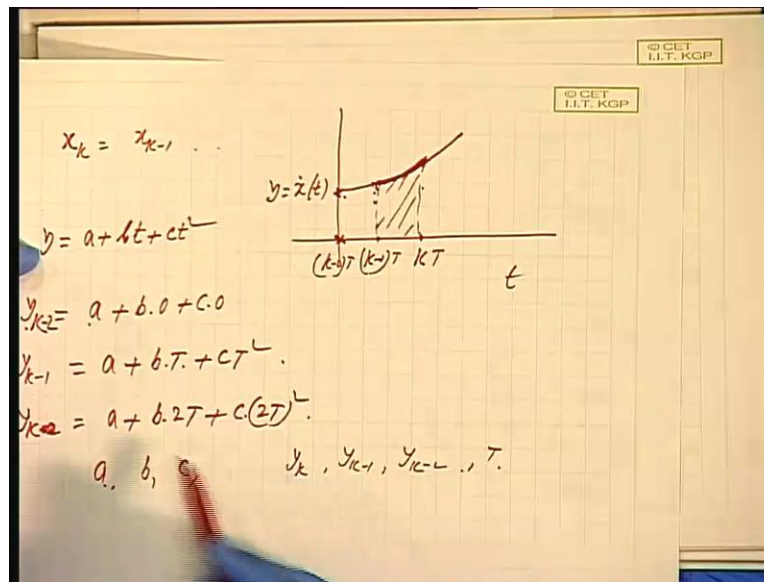 © CET
I.I.T. KGP
© CET
I.I.T. KGP
x_k = x_{k-1} . .
y = ẋ(t)
(k-2)T (k-1)T kT
t
y = a + bt + ct²
y_{k-2} = a + b.0 + c.0
y_{k-1} = a + b.T. + cT².
= a + b.2T + c.(2T)².
a, b, c, y_k, y_{k-1}, y_{k-2}., T.